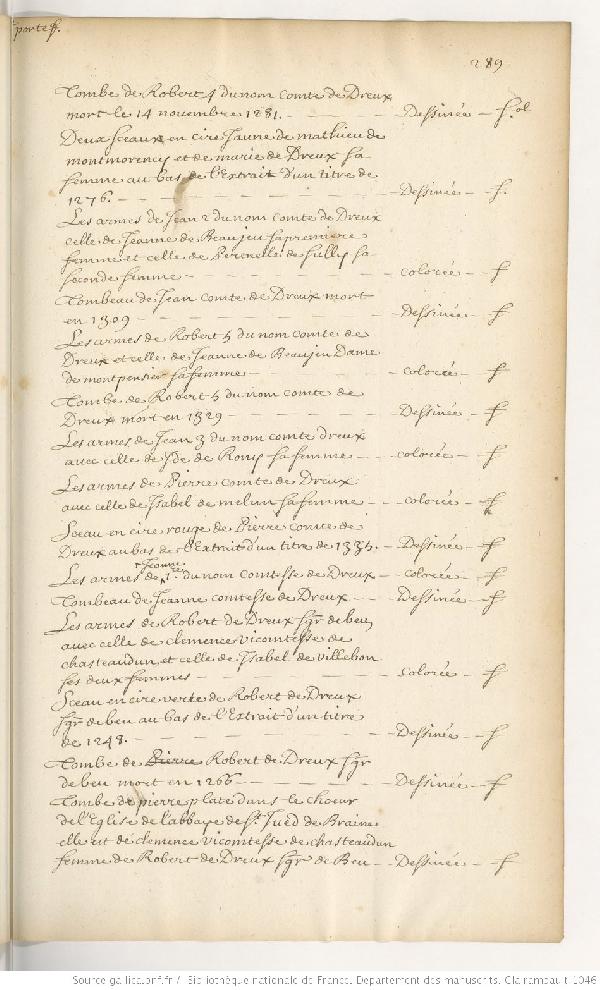 portef.
289
Tombe de Robert 4 du nom comte de Dreux
mort le 14 novembre 1281. — Dessinée — f.ol
Deux sceaux en cire Jaune de mathieu de
montmorency et de marie de Dreux sa
femme au bas de l'Extrait d'un titre de
1276. — Dessinée — f.
Les armes de Jean 2 du nom comte de Dreux
celle de Jeanne de Beaujeu sa premiere
femme et celle de Perenelle de sully sa
seconde femme — colorée — f
Tombeau de Jean comte de Dreux mort
en 1309 — Dessinée — f
Les armes de Robert 5 du nom comte de
Dreux et celle de Jeanne de Beaujeu Dame
de montpensier sa femme — colorée — f
Tombe de Robert 5 du nom comte de
Dreux mort en 1329 — Dessinée — f
Les armes de Jean 3 du nom comte dreux
avec celle de Ide de Rony sa femme — colorée — f
Les armes de Pierre comte de Dreux
avec celle de Isabel de melun sa femme — colorée — f
Sceau en cire rouge de Pierre comte de
Dreux au bas de l'Extrait d'un titre de 1335. — Dessinée — f
Les armes de Jeanne 1.re du nom comtesse de Dreux — colorée — f
Tombeau de Jeanne comtesse de Dreux — Dessinée — f
Les armes de Robert de Dreux sgr de beu
avec celle de clemence vicomtesse de
chasteaudun et celle de Isabel de villebon
ses deux femmes — colorée — f
Sceau en cire verte de Robert de Dreux
sgr de beu au bas de l'Extrait d'un titre
de 1248. — Dessinée — f
Tombe de Pierre Robert de Dreux sgr
de beu mort en 1266 — Dessinée — f
Tombe de pierre plate dans le choeur
de l'Eglise de l'abbaye de St. Jued de Braine
elle est de clemence vicomtesse de chasteaudun
femme de Robert de Dreux sgr de Beu — Dessinée — f
Source gallica.bnf.fr / Bibliothèque nationale de France. Département des manuscrits. Clairambault 1046